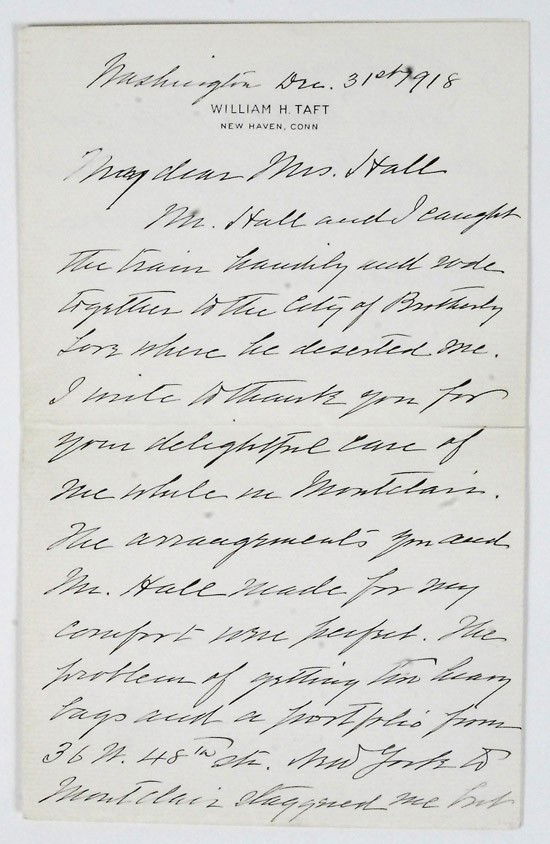 Washington Dec. 31st 1918
WILLIAM H. TAFT
NEW HAVEN, CONN
My dear Mrs. Hall
Mr. Hall and I caught
the train handily and rode
together to the City of Brotherly
Love where he deserted me.
I write to thank you for
your delightful care of
me while in Montclair.
The arrangements you and
Mr. Hall made for my
comfort were perfect. The
problem of getting two heavy
bags and a portfolio from
36 W. 48th St. New York to
Montclair staggered me but